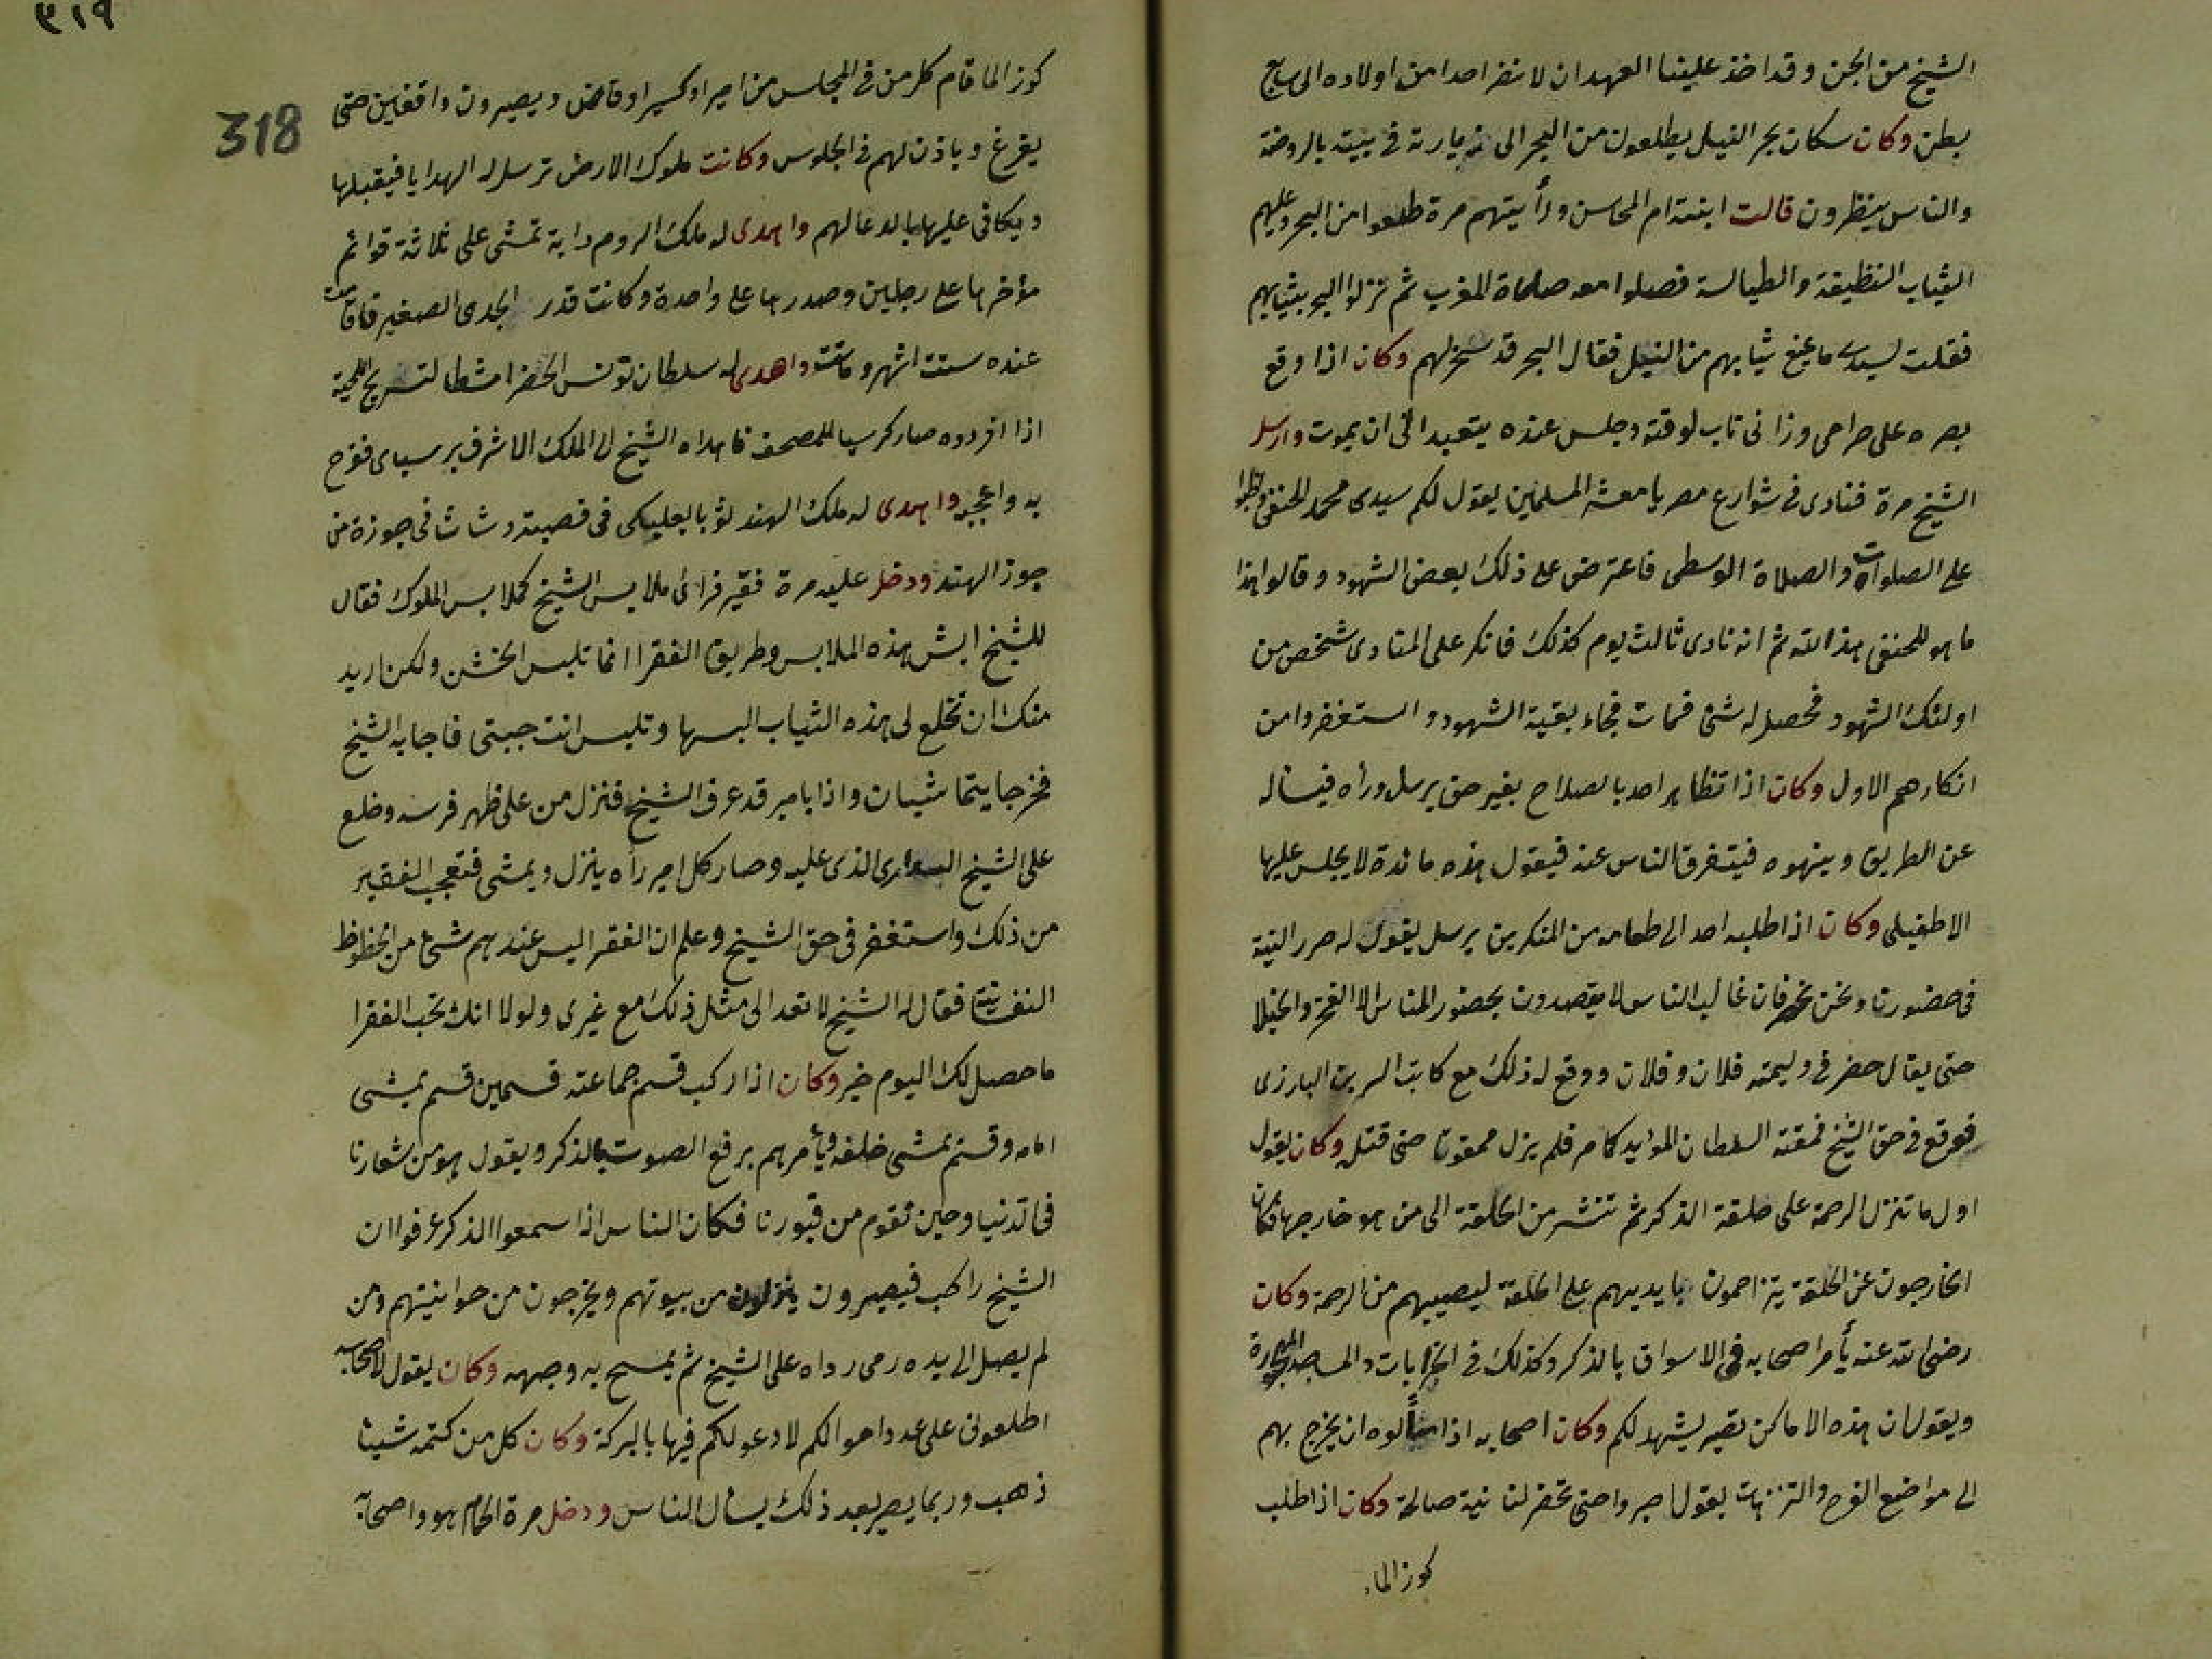 الشيخ من الجن وقد اخذ علينا العهد ان لا نضر احدا من اولاده الى سابع
بطن وكان سكان بحر النيل يطلعون من البحر الى زيارته في بيته بالروضة
والناس ينظرون قالت ابنته ام المحاسن ورأيتهم مرة طلعوا من البحر وعليهم
الثياب النظيفة والطيالسة فصلوا معه صلاة المغرب ثم نزلوا البحر بثيابهم
فقلت لسيدي ما يمنع ثيابهم من النيل فقال البحر قد سخر لهم وكان اذا وقع
بصره على حرامى وزانى تاب لوقته وجلس عنده يتعبد الى ان يموت وارسل
الشيخ مرة فنادى في شوارع مصر يا معشر المسلمين يقول لكم سيدى محمد الحنفى حافظوا
على الصلوات والصلاة الوسطى فاعترض على ذلك بعض الشهود وقالوا هذا
ما هو للحنفى هذا لله ثم انه نادى ثالث يوم كذلك فانكر على المنادى شخص من
اولئك الشهود فحصل له شئ فمات فجاء بقية الشهود واستغفروا من
انكارهم الاول وكان اذا تظاهر احد بالصلاح بغير حق يرسل وراه فيسأله
عن الطريق وينهوه فيتفرق الناس عنه فيقول هذه مائدة لا يجلس عليها
الا طفيلى وكان اذا طلبه احد الى طعامه من المنكرين يرسل يقول له حرر النية
في حضورنا ونحن نحضر فان غالب الناس لا يقصدون بحضور المناس الا الفخر والخيلا
حتى يقال حضر في وليمته فلان وفلان ووقع له ذلك مع كاتب السر بن البارزى
فوقع في حق الشيخ فمقته السلطان المؤيد كما مر فلم يزل ممقوتا حتى قتله وكان يقول
اول ما تنزل الرحمة على حلقة الذكر ثم تنتشر من الحلقة الى من هو خارجها فكان
الخارجون عن الحلقة يتزاحمون بايديهم على الحلقة ليصيبهم من الرحمة وكان
رضى الله عنه يأمر اصحابه في الاسواق بالذكر وكذلك في الخرابات والمساجد المهجورة
ويقول ان هذه الاماكن تصير يشهد لكم وكان اصحابه اذا سألوه ان يخرج بهم
الى مواضع الفرح والتنزهات يقول اصبروا حتى تحضر لنا نية صالحة وكان اذا طلب
كوز الماء
٣١٩
318
كوز الما قام كل من في المجلس من امير او كبير او قاض ويصيرون واقفين حتى
يفرغ وياذن لهم في الجلوس وكانت ملوك الارض ترسل له الهدايا فيقبلها
ويكافى عليها بالدعا لهم واهدى له ملك الروم دابة تمشى على ثلاثة قوائم
مؤخرها على رجلين وصدرها على واحدة وكانت قدر الجدى الصغير فاقامت
عنده ستت اشهر وماتت واهدى له سلطان تونس الخضرا مشطا لتسريح اللحية
اذا افردوه صار كرسيا للمصحف فاهداه الشيخ الى الملك الاشرف برسباى ففرح
به واعجبه واهدى له ملك الهند ثوبا بعلبكى في قصبة وشاشا في جوزة من
جوز الهند ودخل عليه مرة فقير فرائ ملابس الشيخ كملابس الملوك فقال
للشيخ ايش هذه الملابس وطريق الفقرا انما تلبس الخشن ولكن اريد
منك ان تخلع لى هذه الثياب البسها وتلبس انت جبتى فاجابه الشيخ
فخرجا يتماشيان واذا بامير قد عرف الشيخ فنزل من على ظهر فرسه وخلع
على الشيخ الذى عليه وصار كل امير رأه ينزل ويمشى فتعجب الفقير
من ذلك واستغفر في حق الشيخ وعلم ان الفقرا ليس عندهم شئ من الحظوظ
النفسانية فقال له الشيخ لا تعد الى مثل ذلك مع غيرى ولولا انك تحب الفقرا
ما حصل لك اليوم خير وكان اذا ركب قسم جماعته قسمين قسم يمشى
امامه وقسم يمشى خلفه ويأمرهم برفع الصوت بالذكر ويقول هو من شعارنا
في الدنيا وحين نقوم من قبورنا فكان الناس اذا سمعوا الذكر عرفوا ان
الشيخ راكب فيصيرون ينزلون من بيوتهم ويخرجون من حوانيتهم ومن
لم يصل الى يده رمى رداه على الشيخ ثم يمسح به وجهه وكان يقول لاصحابه
اطلعونى على عدد احوالكم لادعو لكم فيها بالبركة وكان كل من كتمه شيئا
ذهب وربما يصير بعد ذلك يسأل الناس ودخل مرة الحمام هو واصحابه